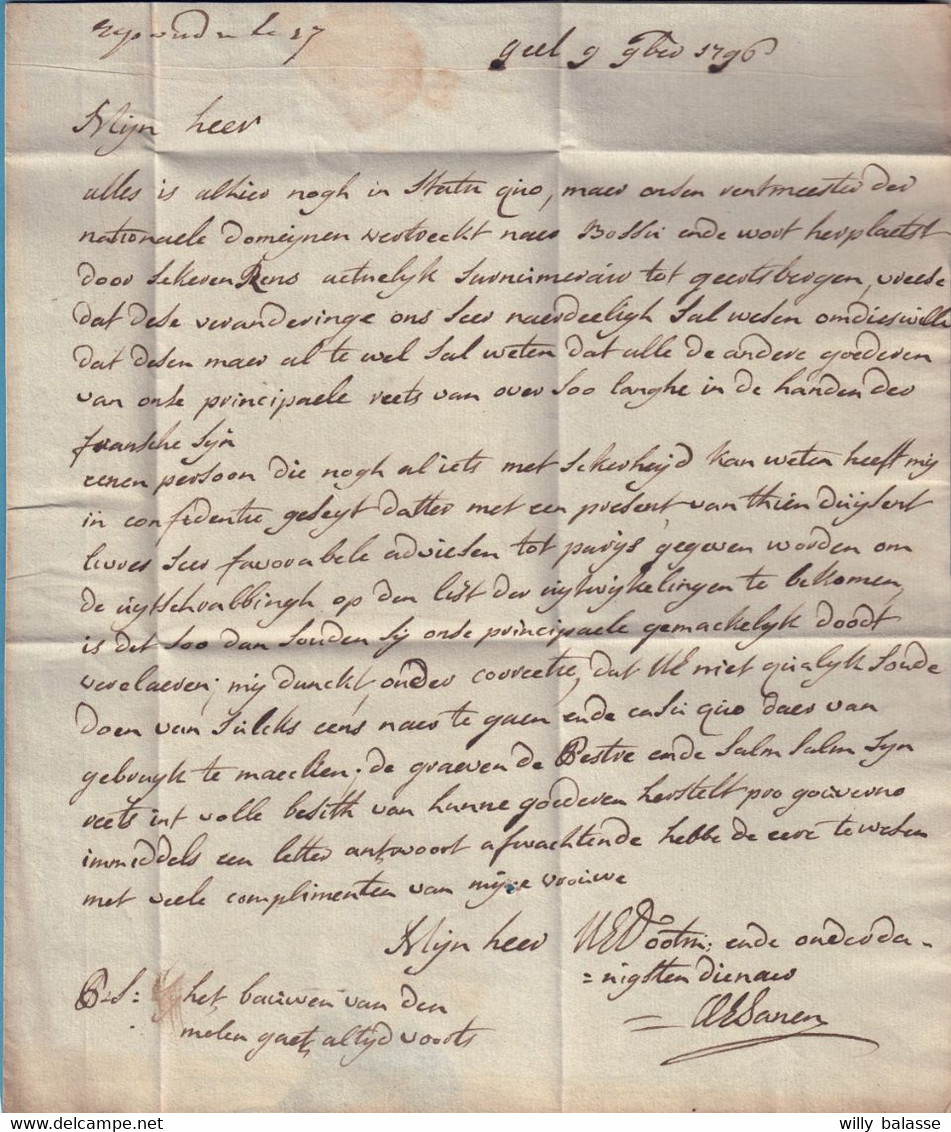 le 27
geel 9 9bre 1796
Mijn heer
alles is alhier nogh in Statu quo, maer onsen rentmeester der
nationaele domeijnen vertreckt naer Bossu ende wort herplaetst
door sekeren Rens actuelijk surnumerair tot geertsbergen, vreese
dat dese veranderinge ons seer naerdeeligh sal wesen omdieswille
dat desen maer al te wel sal weten dat alle de andere goederen
van onse principaele reets van over soo langhe in de handen der
fransche sijn
eenen persoon die nogh al iets met sekerheijd kan weten heeft mij
in confidentie geseyt datter met een present van thien duijsent
livres seer favorabele adviesen tot parijs gegeven worden om
de uijtschrabbingh op den list der uijtwijkelingen te bekomen,
is det soo dan souden sij onse principaele gemackelijk doodt
verclaeren; mij dunckt, onder correctie, dat UE niet qualijk soude
doen van sulcks eens naer te gaen ende casu quo daer van
gebruijk te maecken; de graeven de Pestre ende Salm Salm sijn
reets int volle besith van hunne goederen herstelt pro gouverno
immiddels een letter antwoort afwachtende hebbe de eere te wesen
met veele complimenten van mijne vrouwe
Mijn heer UED ootm: ende onderda-
=nigsten dienaer
P:S: het bauwen van den
molen gaet altyd voorts
willy balasse